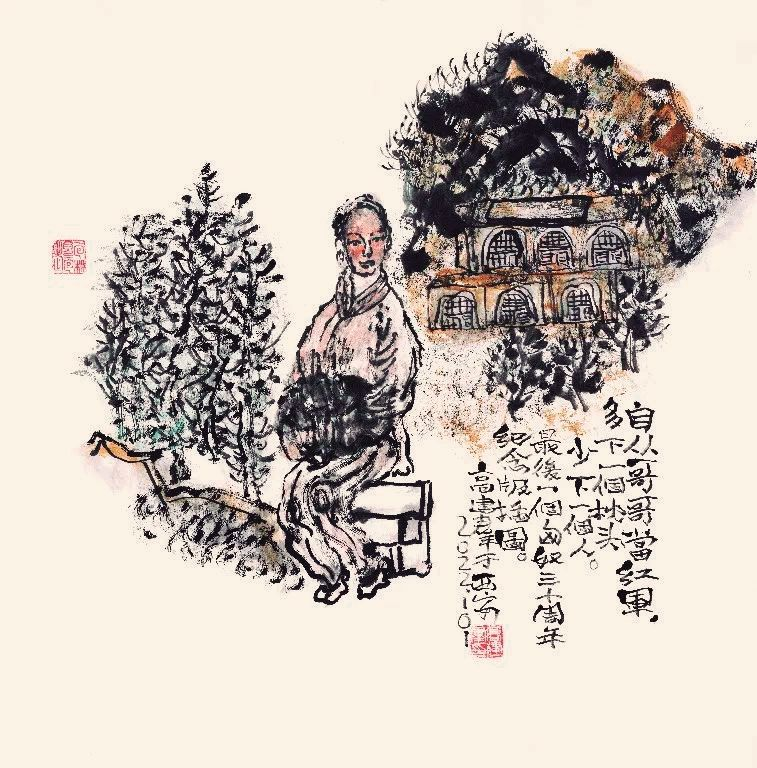 自从哥哥當红軍，
多下一個枕头
少下一個人。
最後一個匈奴三十周年
纪念版插圖。
高建群于西安
2022.10.1